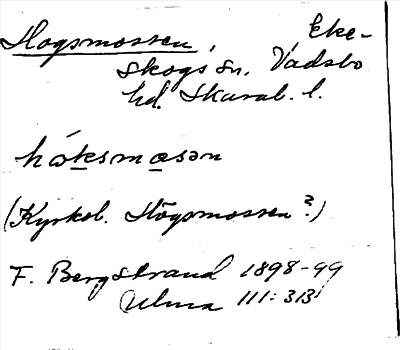 Hogsmossen, Eke-
skogs sn. Vadsbo
hd. Skarab. l.
håksmosən
(Kyrkob. Högsmossen?)
F. Bergstrand 1898-99
Ulma 111:313